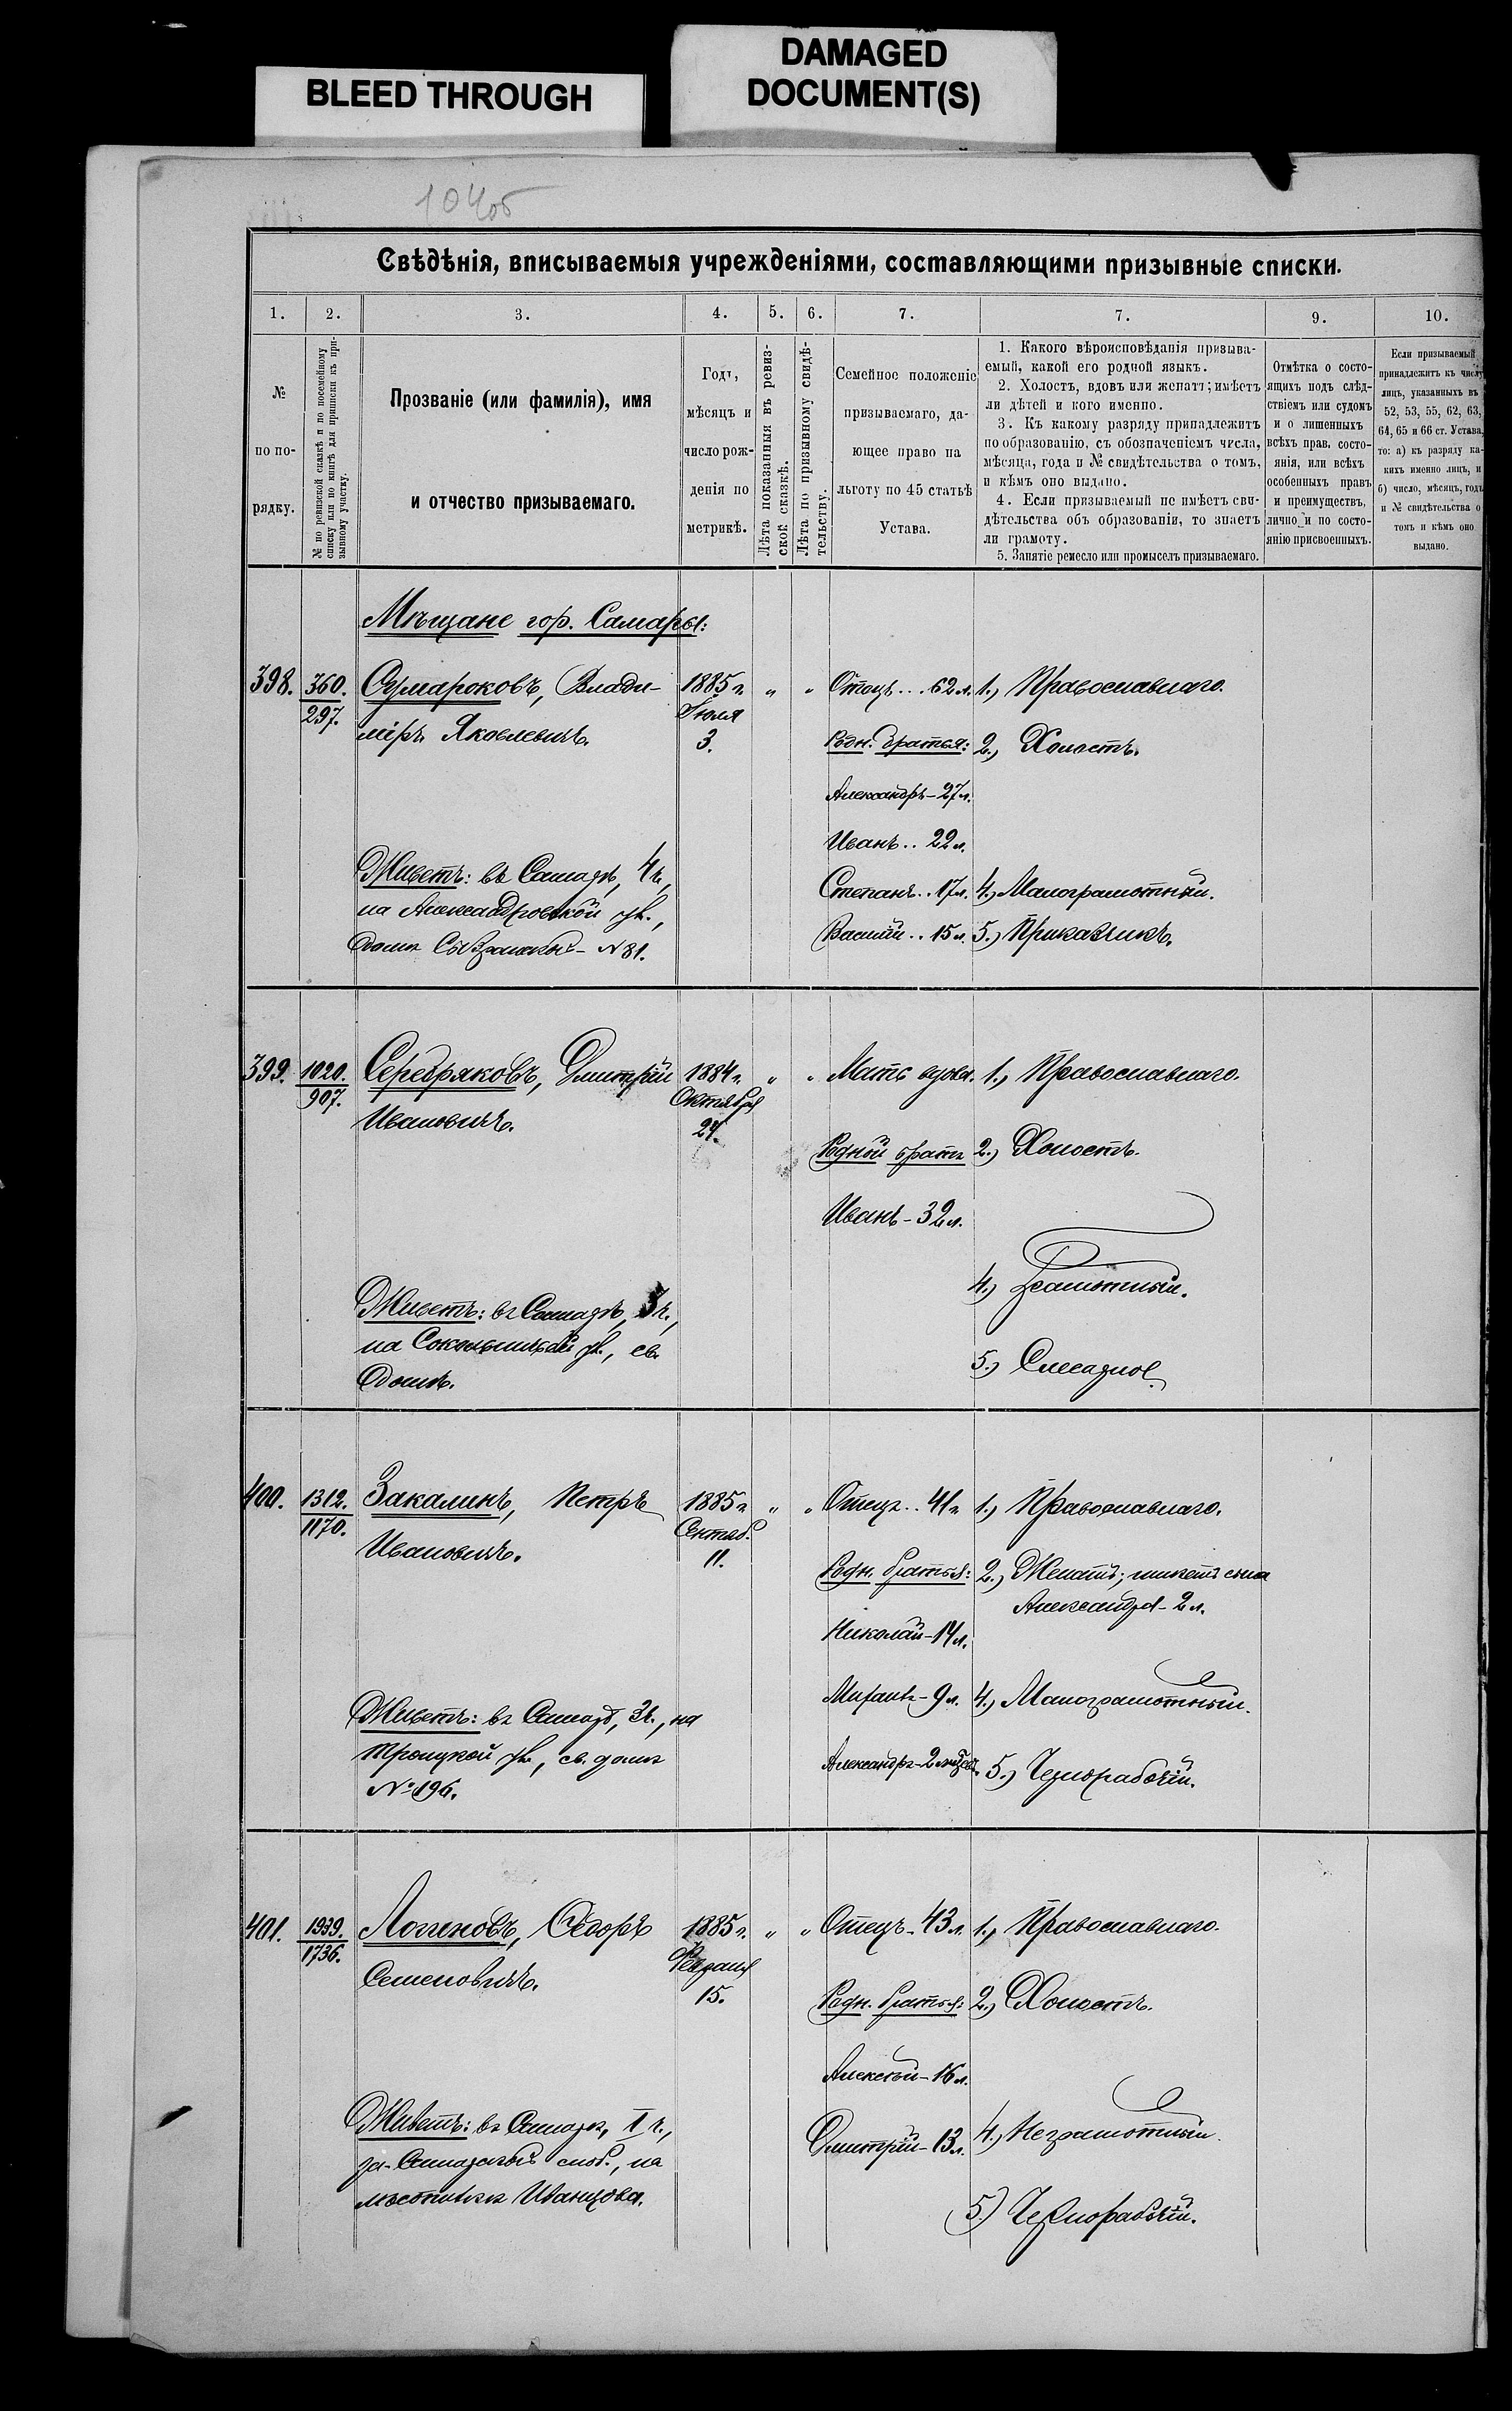 BLEED THROUGH
DAMAGED
DOCUMENT(S)
104об
Свѣдѣнія, вписываемыя учрежденіями, составляющими призывные списки.
1. 2. 3. 4. 5. 6. 7. 7. 9. 10.
№
по по-
рядку.
№ по ревизской сказкѣ и по посемейному
списку или по книгѣ для приписки къ при-
зывному участку.
Прозваніе (или фамилія), имя
и отчество призываемаго.
Годъ,
мѣсяцъ и
число рож-
денія по
метрикѣ.
Лѣта показанныя въ ревиз-
ской сказкѣ.
Лѣта по призывному свидѣ-
тельству.
Семейное положеніе
призываемаго, да-
ющее право на
льготу по 45 статьѣ
Устава.
1. Какого вѣроисповѣданія призыва-
емый, какой его родной языкъ.
2. Холостъ, вдовъ или женатъ; имѣетъ
ли дѣтей и кого именно.
3. Къ какому разряду принадлежитъ
по образованію, съ обозначеніемъ числа,
мѣсяца, года и № свидѣтельства о томъ,
и кѣмъ оно выдано.
4. Если призываемый не имѣетъ сви-
дѣтельства объ образованіи, то знаетъ
ли грамоту.
5. Занятіе ремесло или промыселъ призываемаго.
Отмѣтка о состо-
ящихъ подъ слѣд-
ствіемъ или судомъ
и о лишенныхъ
всѣхъ прав. состо-
янія, или всѣхъ
особенныхъ правъ
и преимуществъ,
лично и по состо-
янію присвоенныхъ.
Если призываемый
принадлежитъ къ числу
лицъ, указанныхъ въ
52, 53, 55, 62, 63,
64, 65 и 66 ст. Устава,
то: а) къ разряду ка-
кихъ именно лицъ, и
б) число, мѣсяцъ, годъ
и № свидѣтельства о
томъ и кѣмъ оно
выдано.
Мѣщане гор. Самары:
398. 360. Сумароковъ, Влади- 1885 г. " " Отецъ... 62 л. 1.) Православнаго.
297. міръ Яковлевичъ. Іюля
3. Родн. братья: 2.) Холостъ.
Александръ - 27 л.
Иванъ.. 22 л.
Живетъ: въ Самарѣ, 4 ч., Степанъ.. 17 л. 4.) Малограмотный.
на Александровской ул., Василій.. 15 л. 5.) Приказчикъ.
домъ - N 81.
399. 1020. Серебряковъ, Дмитрій 1884 г. " " Мать вдова. 1.) Православнаго.
907. Ивановичъ. Октября
24. Родной братъ 2.) Холостъ.
Иванъ - 32 л.
4.) Грамотный.
Живетъ: въ Самарѣ, 3 ч.,
на Сокольничьей ул., св.
домъ.
5.) Слесарное.
400. 1312. Закалинъ, Петръ 1885 г. " " Отецъ.. 41 г. 1.) Православнаго.
1170. Ивановичъ. Сентяб.
11. Родн. братья: 2.) Женатъ; имѣетъ сына
Александра - 2 л.
Николай - 14 л.
Живетъ: въ Самарѣ, 3 ч., на Михаилъ - 9 л. 4.) Малограмотный.
Троицкой ул., св. домъ Александръ - 2 5.) Чернорабочій.
№ 196.
401. 1939. Логиновъ, Ѳедоръ 1885 г. " " Отецъ - 43 л. 1.) Православнаго.
1736. Семеновичъ. Февраля
15. Родн. братья: 2.) Холостъ.
Алексѣй - 16 л.
Живетъ: въ Самарѣ, 1 ч., Дмитрій - 13 л. 4.) Неграмотный.
за-Самарской слоб., на
мѣстничкѣ Иванцова. 5.) Чернорабочій.